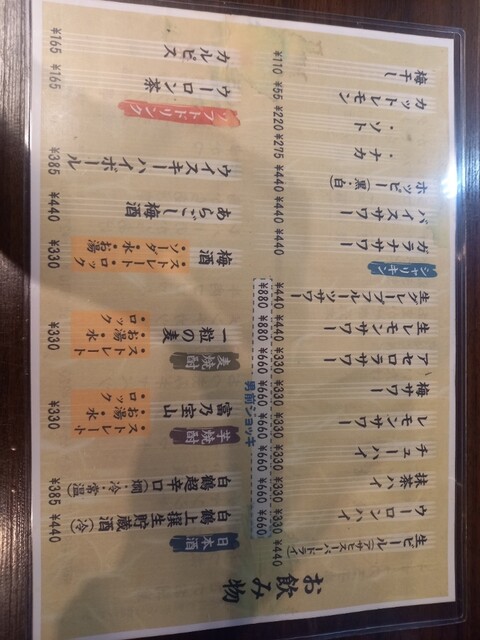 お飲み物
生ビール(アサヒスーパードライ) ¥440
ウーロンハイ ¥330 ¥660
抹茶ハイ ¥330 ¥660
チューハイ ¥330 ¥660
レモンサワー ¥330 ¥660
梅サワー ¥330 ¥660
アセロラサワー ¥330 ¥660
生レモンサワー ¥440 ¥880
生グレープルーツサワー ¥440 ¥880
男前ジョッキ
シャリキン
ガラナサワー ¥440
バイスサワー ¥440
ホッピー(黒・白) ¥440
・ナカ ¥275
・ソト ¥220
カットレモン ¥55
梅干し ¥110
日本酒
白鶴上撰生貯蔵酒(冷) ¥440
白鶴超辛口(燗・冷・常温) ¥385
芋焼酎
富乃宝山 ¥330
・ストレート
・お湯・水
・ロック
麦焼酎
一粒の麦 ¥330
・ストレート
・お湯・水
・ロック
梅酒 ¥330
・ストレート・ロック
・ソーダ・水・お湯
あらごし梅酒 ¥440
ウイスキーハイボール ¥385
ソフトドリンク
ウーロン茶 ¥165
カルピス ¥165